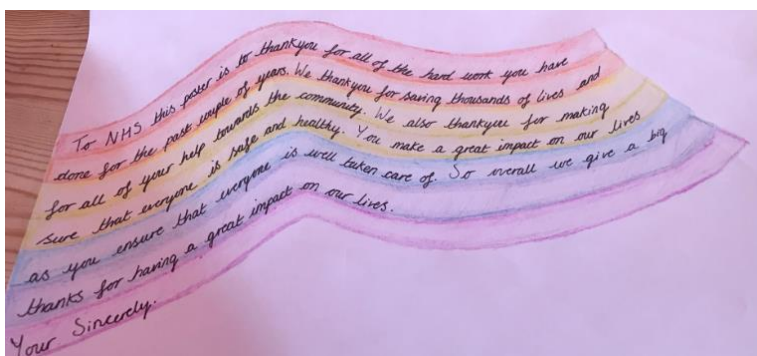 To NHS this poster is to thankyou for all of the hard work you have
done for the past couple of years. We thankyou for saving thousands of lives and
for all of your help towards the community. We also thankyou for making
sure that everyone is safe and healthy. You make a great impact on our lives
as you ensure that everyone is well taken care of. So overall we give a big
thanks for having a great impact on our lives.
Your Sincerely.